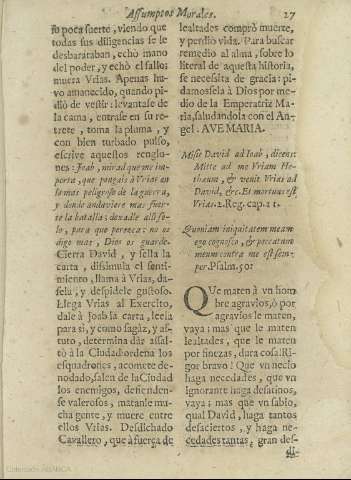 Assumptos Morales.
27
ſo poca ſuerte, viendo que
todas ſus diligencias ſe le
desbarataban, echò mano
del poder, y echò el fallo:
muera Vrias. Apenas hu-
vo amanecido, quando pi-
diò de veſtir: levantaſe de
la cama, entraſe en ſu re-
trete, toma la pluma, y
con bien turbado pulſo,
eſcrive aqueſtos renglo-
nes: Joab, mirad que me im-
porta, que pongais à Vrias en
lo mas peligroſo de la guerra,
y donde anduviere mas fuer-
te la batalla; dexadle alli ſo-
lo, para que perezca: no os
digo mas, Dios os guarde.
Cierra David, y ſella la
carta, diſsimula el ſenti-
miento, llama à Vrias, da-
ſela, y deſpidele guſtoſo.
Llega Vrias al Exercito,
dale à Joab la carta, leela
para sì, y como ſagàz, y aſ-
tuto, determina dàr aſſal-
tò à la Ciudad: ordena los
eſquadrones, acomete de-
nodado, ſalen de la Ciudad
los enemigos, defienden-
ſe valeroſos, matanle mu-
cha gente, y muere entre
ellos Vrias. Deſdichado
Cavallero, que à fuerça de
lealtades comprò muerte,
y perdiò vida. Para buscar
remedio al alma, ſobre lo
literal de aqueſta hiſtoria,
ſe neceſsita de gracia: pi-
damosſela à Dios por me-
dio de la Emperatriz Ma-
ria, ſaludandola con el An-
gel: AVE MARIA.
Miſit David ad Ioab, dicens:
Mitte ad me Vriam He-
thæum, & venit Vrias ad
David, &c. Et mortuus eſt
Vrias. 2. Reg. cap. 11.
Quoniam iniquitatem meam
ego cognoſco, & peccatum
meum contra me eſt ſem-
per. Pſalm. 50:
QUe maten à vn hom
bre agravios, ò por
agravios le maten,
vaya; mas que le maten
lealtades, que le maten
por finezas, dura coſa! Ri-
gor bravo! Que vn necio
haga necedades, que vn
ignorante haga deſatinos,
vaya; mas que vn ſabio,
qual David, haga tantos
deſaciertos, y haga ne-
cedades tantas, gran deſ-
Colección ABANCA